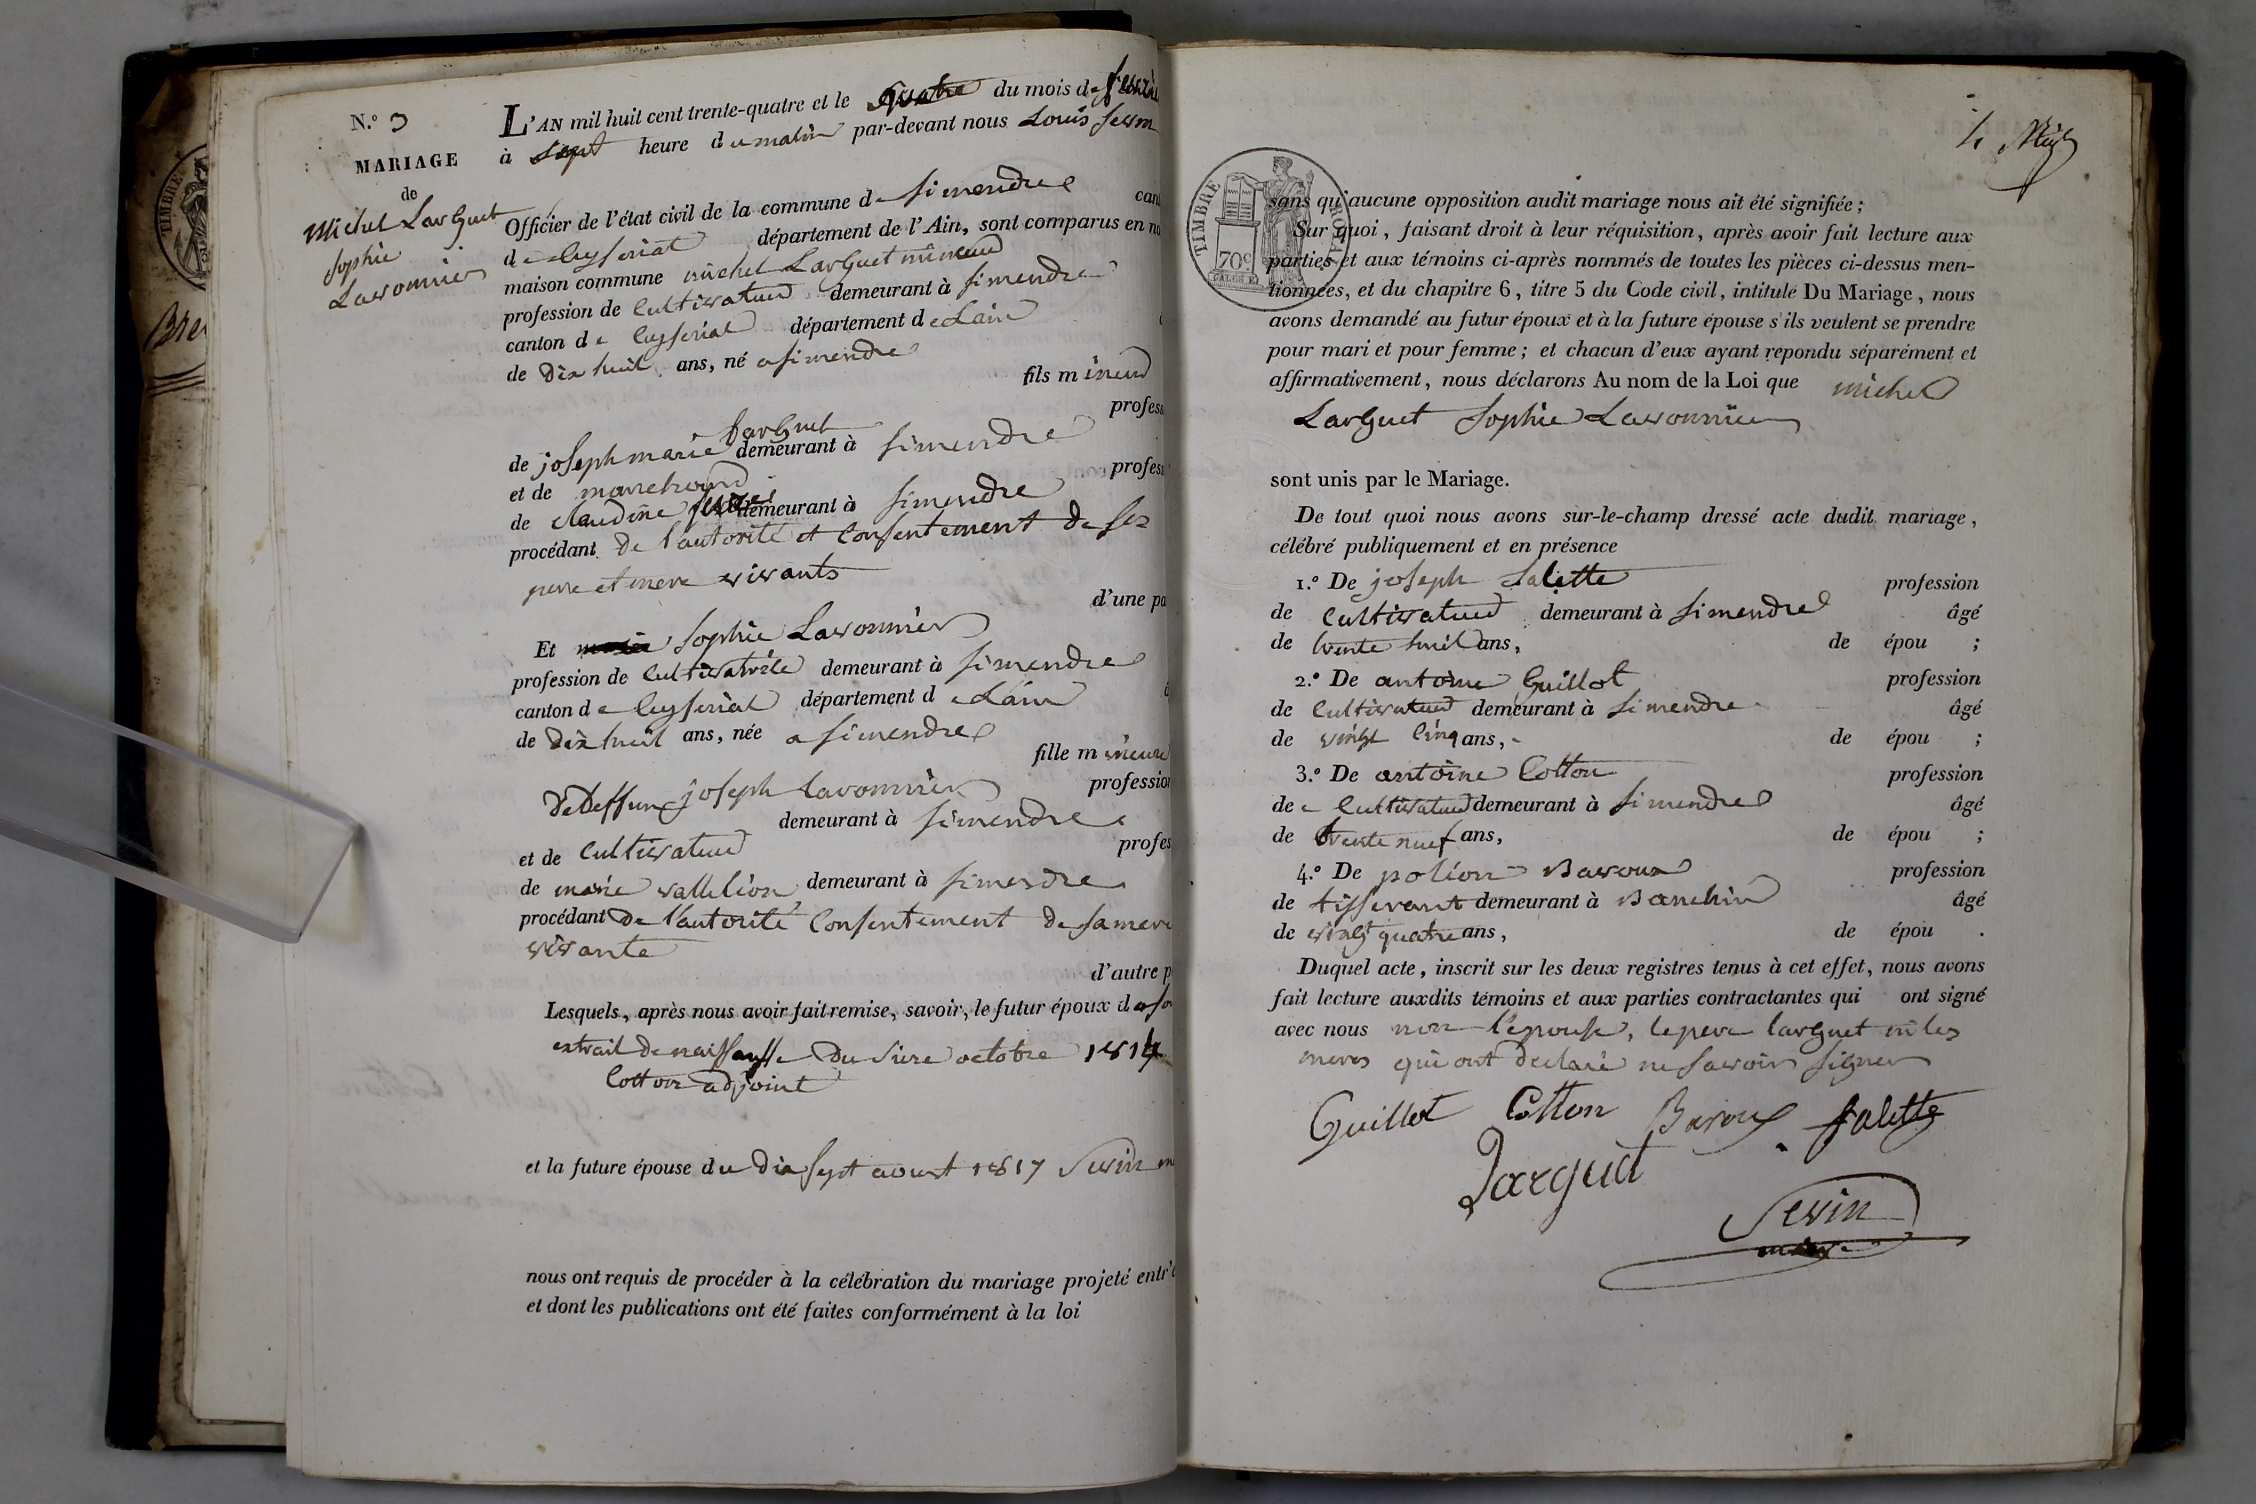 N.º 3
MARIAGE
de
Michel Larguet
Sophie
Lavomnier
TIMBRE
Bre
L'AN mil huit cent trente-quatre et le quatre du mois de fevrie
à sept heure du matin par-devant nous Louis
Officier de l'état civil de la commune de simendre can
de Ceyseriat département de l'Ain, sont comparus en no
maison commune michel Larguet mineur
profession de Cultivateur demeurant à simendre
canton de Ceyseriat département de Lain
de dix huit ans, né a simendre
fils mineur
profess
de joseph marie Larguet demeurant à simendre
et de marchand profess
de claudine demeurant à simendre
procédant de l'autorité et Consentement de ses
pere et mere vivants
d'une pa
Et Sophie Lavomnier
profession de Cultivatrice demeurant à simendre
canton de Ceyseriat département de Lain
de dix huit ans, née a simendre
fille mineure
De Deffun joseph Lavomnier profession
demeurant à simendre
et de Cultivateur profes
de marie vallelion demeurant à simendre
procédant De l'autorité Consentement de sa mere
vivante
d'autre p
Lesquels, après nous avoir fait remise, savoir, le futur époux de so
extrait de naissansse Du octobre 1814
Cotton adjoint
et la future épouse du Dix sept aoust 1817 Sevin m
nous ont requis de procéder à la célébration du mariage projeté entr'e
et dont les publications ont été faites conformément à la loi
TIMBRE ROYAL
70c
sans qu'aucune opposition audit mariage nous ait été signifiée ;
Sur quoi, faisant droit à leur réquisition, après avoir fait lecture aux
parties et aux témoins ci-après nommés de toutes les pièces ci-dessus men-
tionnées, et du chapitre 6, titre 5 du Code civil, intitulé Du Mariage, nous
avons demandé au futur époux et à la future épouse s'ils veulent se prendre
pour mari et pour femme ; et chacun d'eux ayant repondu séparément et
affirmativement, nous déclarons Au nom de la Loi que michel
Larguet Sophie Lavomnier
sont unis par le Mariage.
De tout quoi nous avons sur-le-champ dressé acte dudit mariage,
célébré publiquement et en présence
1.º De joseph Salette profession
de Cultivateur demeurant à simendre âgé
de trente huit ans, de épou ;
2.º De antoine Guillot profession
de Cultivateur demeurant à simendre âgé
de vingt Cinq ans, de épou ;
3.º De antoine Cotton profession
de Cultivateur demeurant à simendre âgé
de trente neuf ans, de épou ;
4.º De polion Baroux profession
de tisserant demeurant à Banchin âgé
de vingt quatre ans, de épou .
Duquel acte, inscrit sur les deux registres tenus à cet effet, nous avons
fait lecture auxdits témoins et aux parties contractantes qui ont signé
avec nous non l'epouse, le pere larguet ni les
meres qui ont declaré ne savoir signer
Guillot Cotton Baroux Salette
Larguet
Sevin
maire